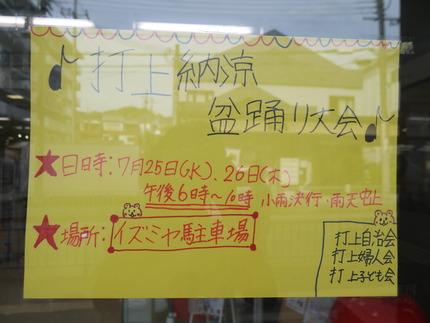 打上納涼
盆踊り大会
★日時：7月25日(水)、26日(木)
午後6時～10時 小雨決行・雨天中止
★場所：イズミヤ駐車場
打上自治会
打上婦人会
打上子ども会